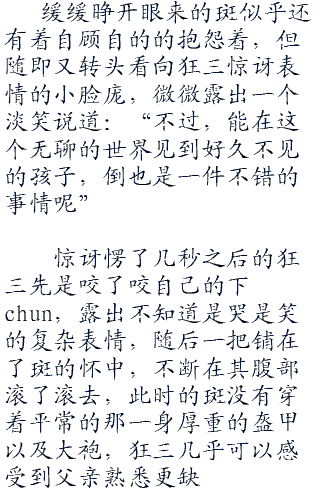 缓缓睁开眼来的斑似乎还
有着自顾自的的抱怨着，但
随即又转头看向狂三惊讶表
情的小脸庞，微微露出一个
淡笑说道：“不过，能在这
个无聊的世界见到好久不见
的孩子，倒也是一件不错的
事情呢”
惊讶愣了几秒之后的狂
三先是咬了咬自己的下
chun，露出不知道是哭是笑
的复杂表情，随后一把铺在
了斑的怀中，不断在其腹部
滚了滚去，此时的斑没有穿
着平常的那一身厚重的盔甲
以及大袍，狂三几乎可以感
受到父亲熟悉更缺